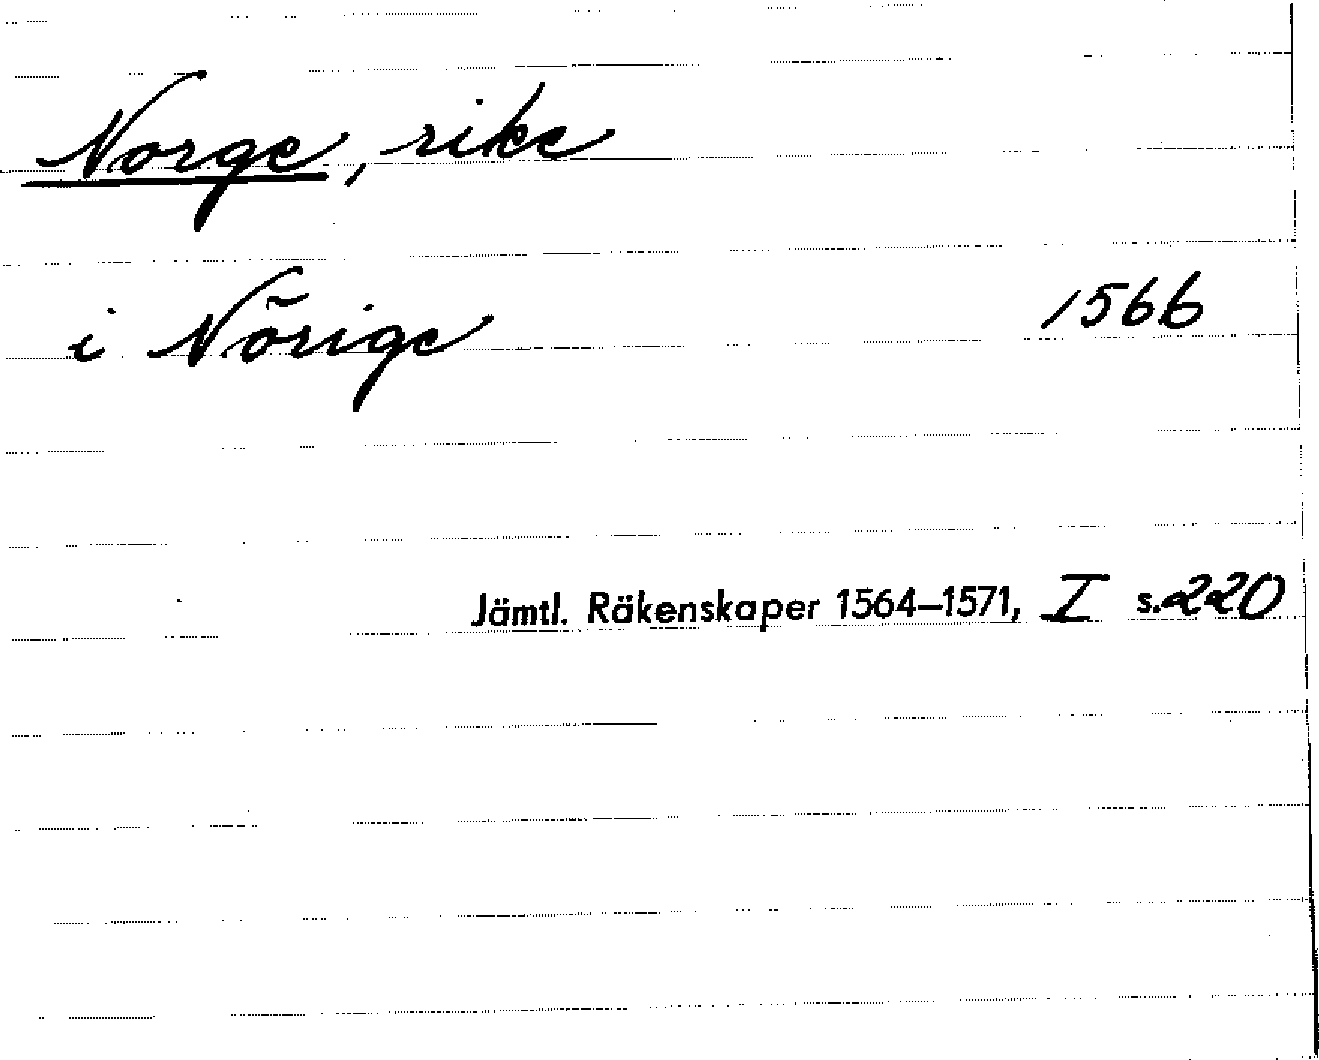 Norge, rike
i Nõrige 1566
Jämtl. Räkenskaper 1564–1571, I s. 220